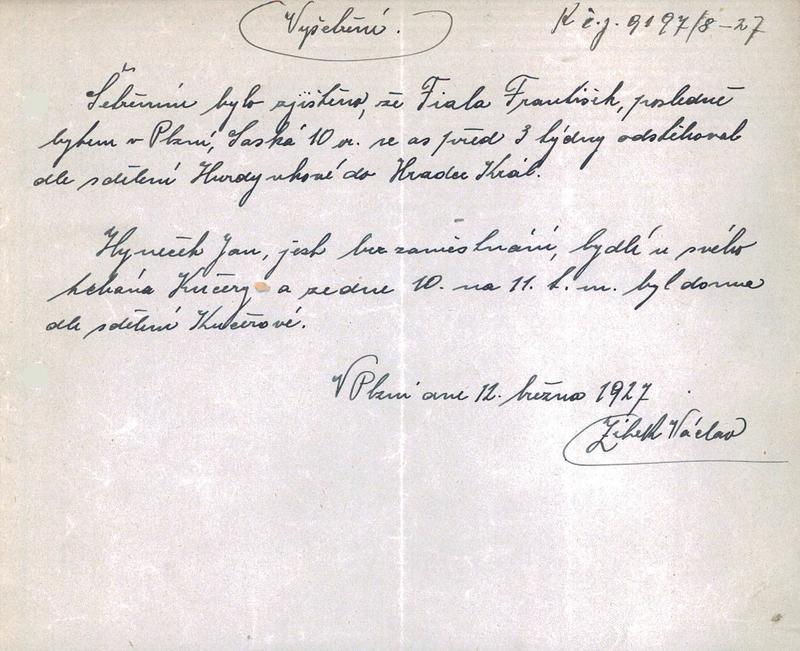 Vyšetření.
K č.j. 9197/8-27
Šetřením bylo zjištěno, že Fiala František, posledně
bytem v Plzni, Saská 10 n. se as před 3 týdny odstěhoval
dle sdělení Hurdynkové do Hradce Král.
Hyneček Jan, jest bez zaměstnání, bydlí u svého
Kučery a ze dne 10. na 11. t. m. byl doma
dle sdělení Kučerové.
V Plzni dne 12. března 1927
Václav